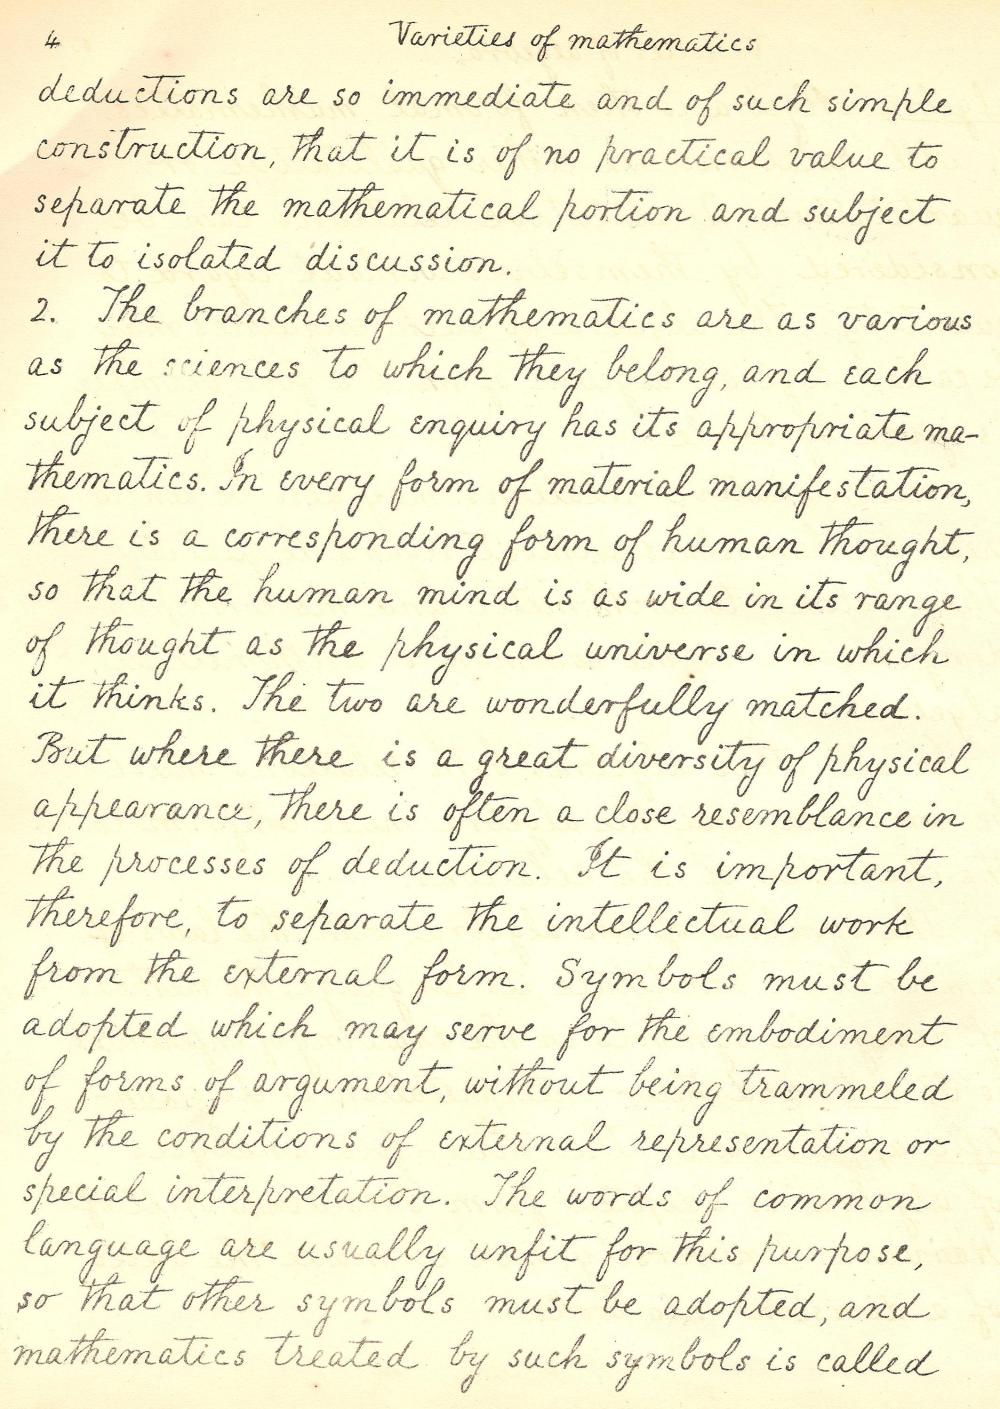 4 Varieties of mathematics
deductions are so immediate and of such simple
construction, that it is of no practical value to
separate the mathematical portion and subject
it to isolated discussion.
2. The branches of mathematics are as various
as the sciences to which they belong, and each
subject of physical enquiry has its appropriate ma-
thematics. In every form of material manifestation,
there is a corresponding form of human thought,
so that the human mind is as wide in its range
of thought as the physical universe in which
it thinks. The two are wonderfully matched.
But where there is a great diversity of physical
appearance, there is often a close resemblance in
the processes of deduction. It is important,
therefore, to separate the intellectual work
from the external form. Symbols must be
adopted which may serve for the embodiment
of forms of argument, without being trammeled
by the conditions of external representation or
special interpretation. The words of common
language are usually unfit for this purpose,
so that other symbols must be adopted, and
mathematics treated by such symbols is called